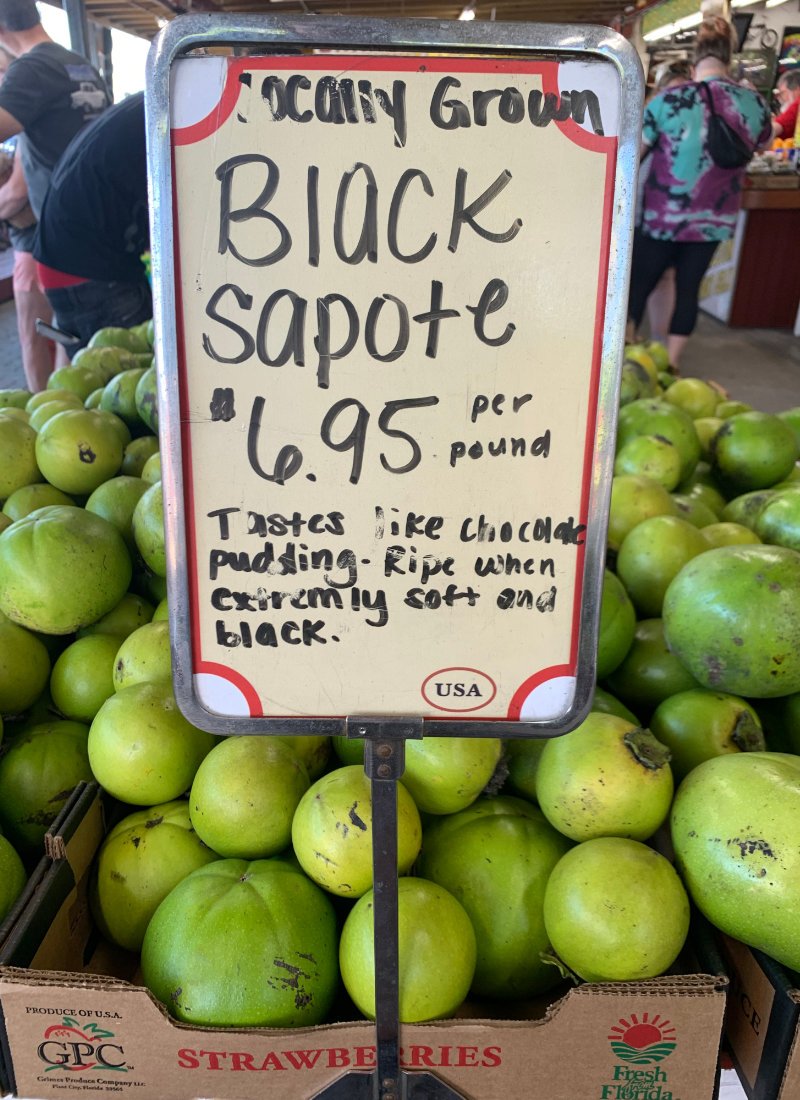 Locally Grown
Black
Sapote
$6.95 per pound
Tastes like chocolate
pudding. Ripe when
extremly soft and
black.
USA
PRODUCE OF U.S.A.
GPC
Grimes Produce Company LLC
Plant City, Florida 33565
STRAWBERRIES
Fresh
from
Florida
CE